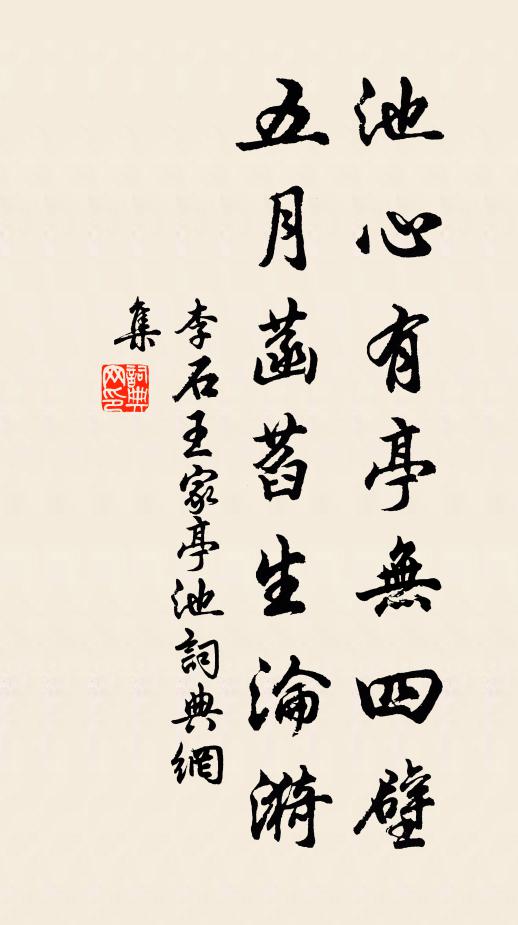 池心有亭無四壁
五月菡萏生淪漪
李石王家亭池詞典網
集
詞典网印